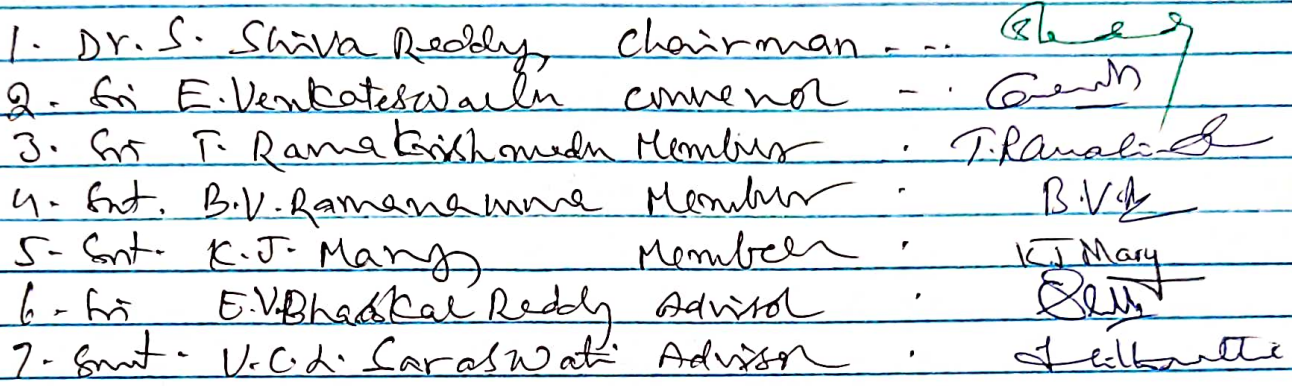 1. Dr. S. Shiva Reddy, Chairman - --
2. Sri E. Venkateswarlu convenor - -
3. Sri T. Rama Krishnudu Member . T. Rama
4. Smt. B.V. Ramanamma Member . B.V
5- Smt. K.J. Mary Member . K J Mary
6- Sri E.V. Bhaskar Reddy Advisor .
7- Smt. V.C.L. Saraswati Advisor .